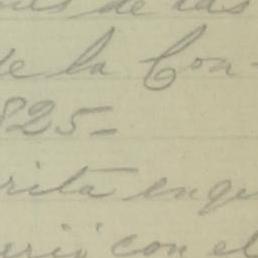 de las
de la Con-
825-
rita en que
con el